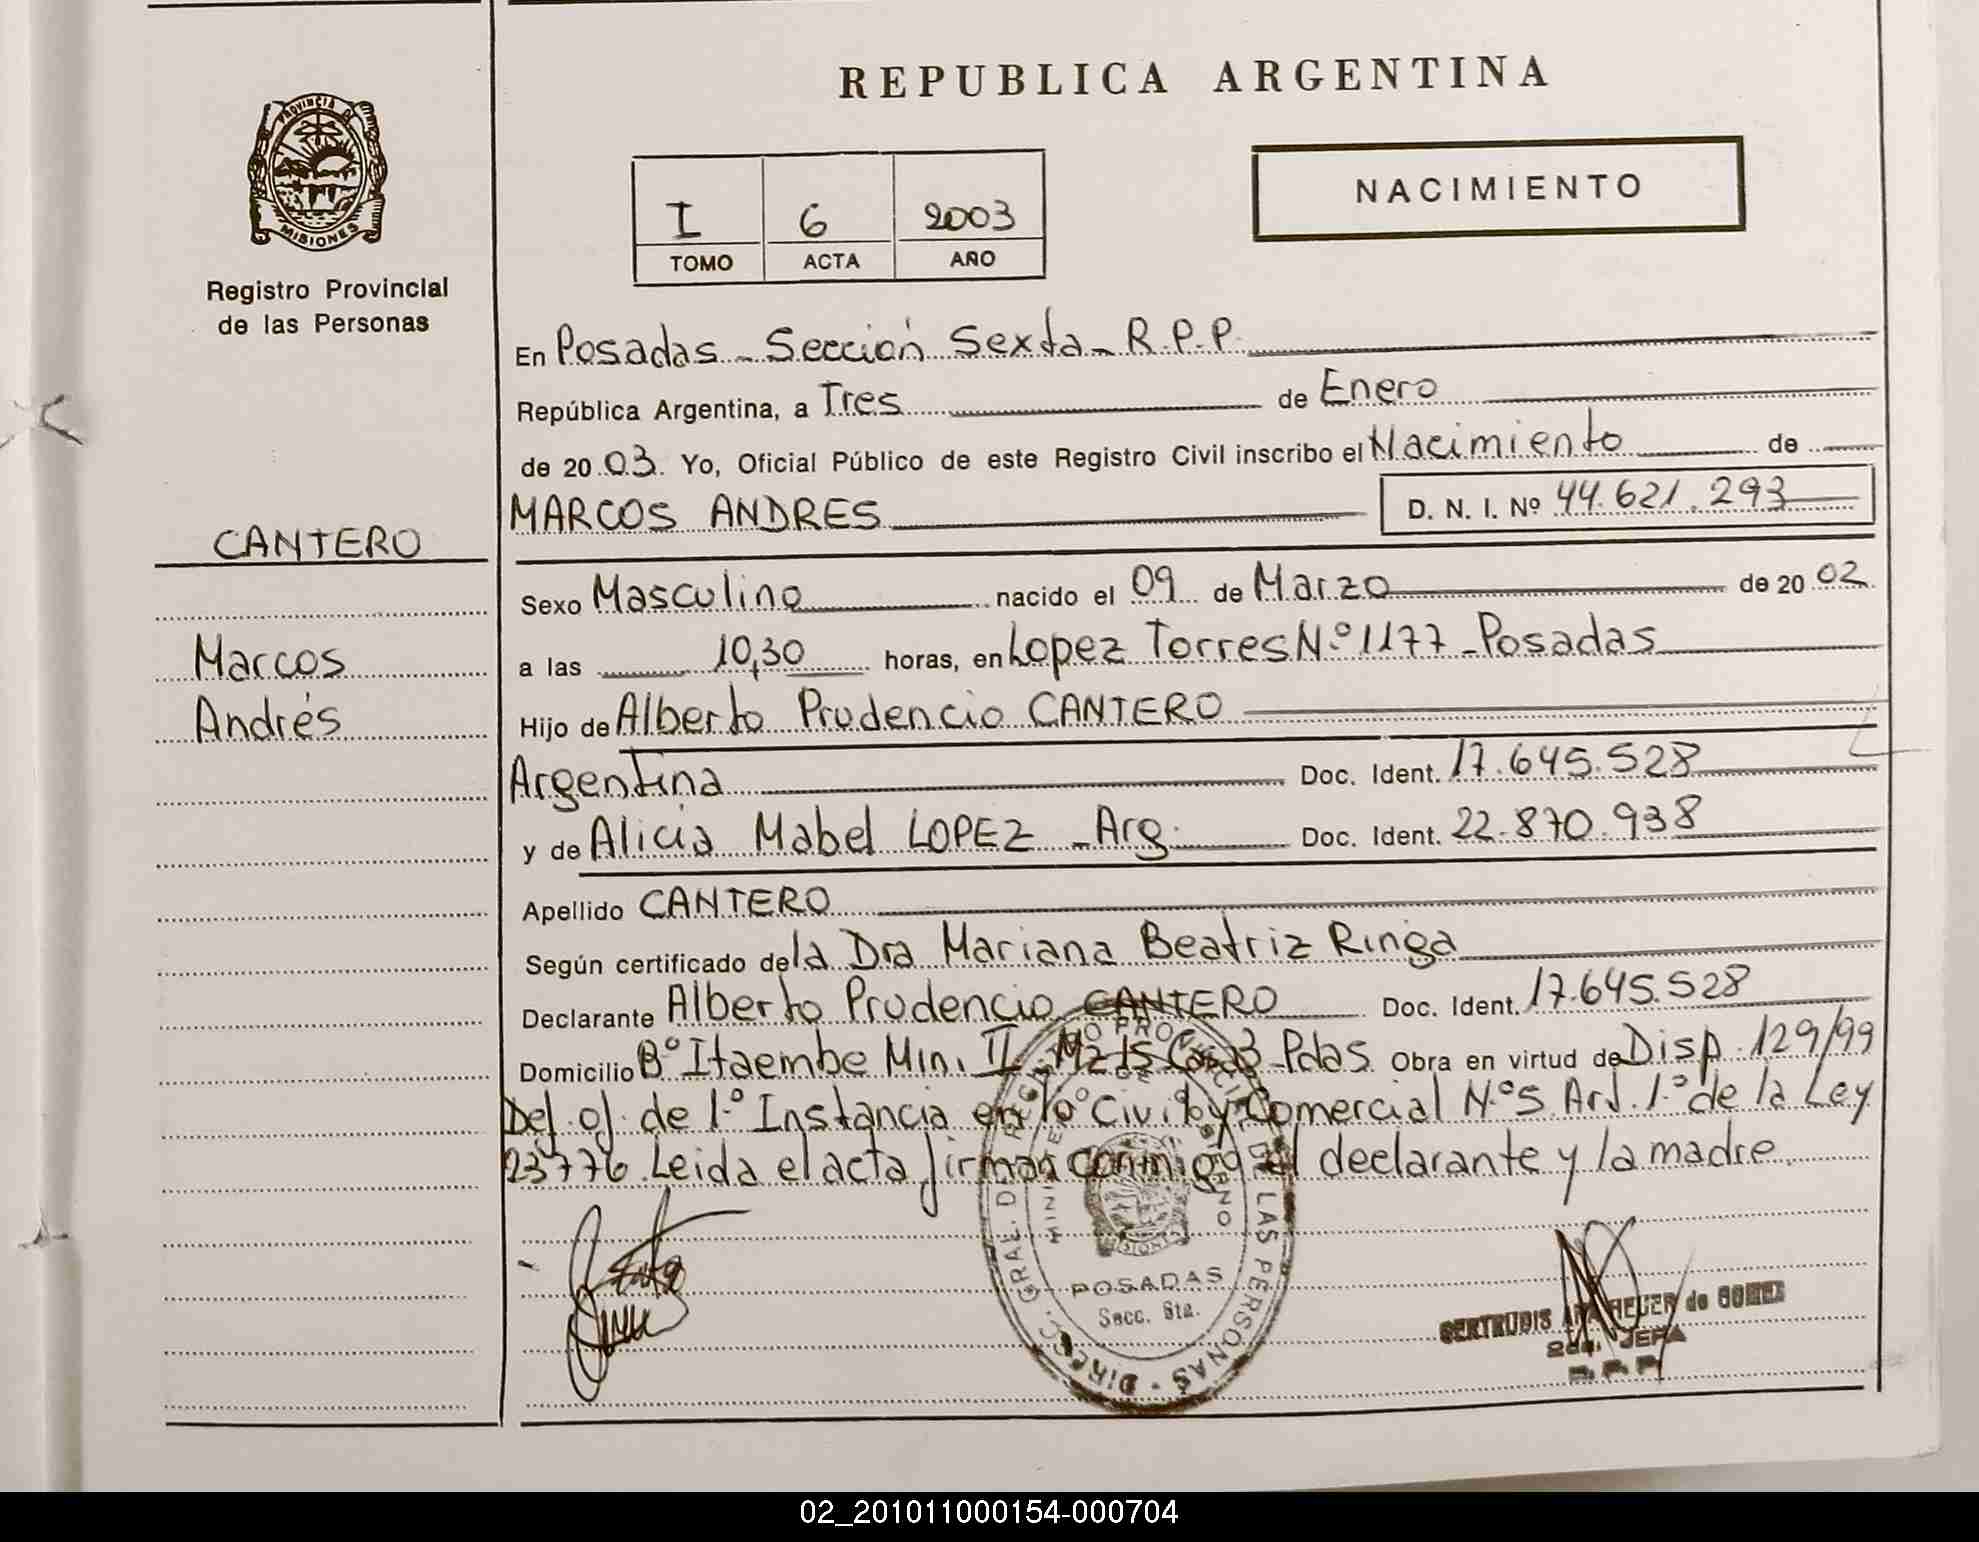 REPUBLICA ARGENTINA
PROVINCIA DE
MISIONES
Registro Provincial
de las Personas
NACIMIENTO
I 6 2003
TOMO ACTA AÑO
CANTERO
Marcos
Andrés
En Posadas - Sección Sexta - R.P.P.
República Argentina, a Tres de Enero
de 20 03. Yo, Oficial Público de este Registro Civil inscribo el Nacimiento de
MARCOS ANDRES D. N. I. Nº 44.621.293
Sexo Masculino nacido el 09 de Marzo de 20 02
a las 10,30 horas, en Lopez Torres N.º 1177 - Posadas
Hijo de Alberto Prudencio CANTERO
Argentina Doc. Ident. 17.645.528
y de Alicia Mabel LOPEZ - Arg. Doc. Ident. 22.870.938
Apellido CANTERO
Según certificado de la Dra Mariana Beatriz Ringa
Declarante Alberto Prudencio CANTERO Doc. Ident. 17.645.528
Domicilio Bº Itaembe Min. II - Mz 15 Pdas. Obra en virtud de Disp. 129/99
Def. of. de 1.º Instancia en lo Civil y Comercial N.º 5 Art. 1.º de la Ley
23776. Leida el acta firman conmigo el declarante y la madre.
DIREC. GRAL. DE LAS PERSONAS
POSADAS
Secc. 6ta.
GERTRUDIS de GOMEZ
2da. JEFA
R. P. P.
02_201011000154-000704